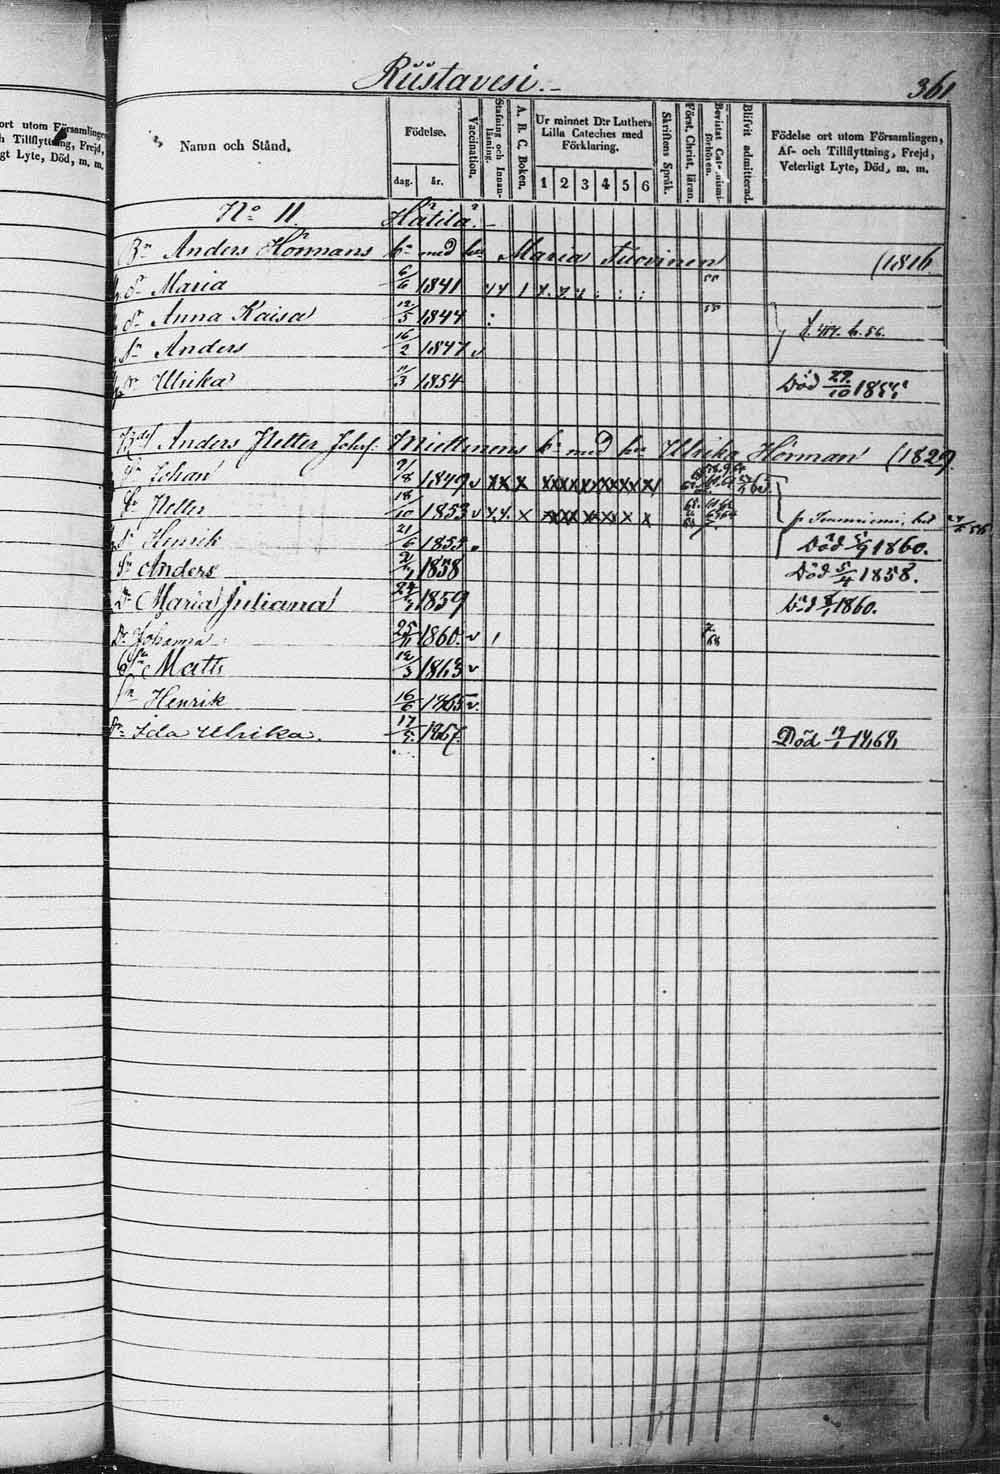 Riistavesi.
361
ort utom Församlingen
h Tillflyttning, Frejd,
gt Lyte, Död, m. m.
Namn och Stånd.
Födelse.
dag. år.
Vaccination.
Stafning och Innanläsning.
A. B. C. Boken.
Ur minnet D:r Luthers Lilla Cateches med Förklaring.
1 2 3 4 5 6
Skriftens Språk.
Först. Christ. läran.
Bevistat Catechismiförhören.
Blifvit admitterad.
Födelse ort utom Församlingen, Af- och Tillflyttning, Frejd, Veterligt Lyte, Död, m. m.
No 11. Hatila.
Anders Hörmans med Maria Tuovinen (1816
Maria 6/6 1841
Anna Kaisa 12/5 1844
Anders 16/2 1847 v
Ulrika 11/3 1854 Död 29/10 1855
Anders Petter Johs: Miettinens med Ulrika Hörman (1829.
Johan 9/8 1849 v x x x
Petter 18/10 1853 v
Henrik 21/6 1855 Död 5/9 1860.
Anders 1858 Död 5/4 1858.
Dr Maria Juliana 1859 Död 1860.
Dr Johanna 1860 v
Sn Matts 12/3 1863 v
Sn Henrik 16/6 1865 v.
Dr Ida Ulrika. 17/5 1867 Död 1868